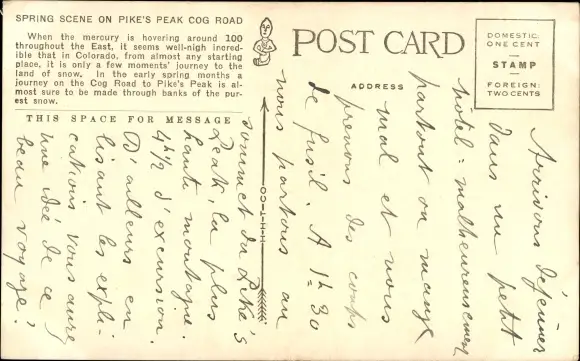 SPRING SCENE ON PIKE'S PEAK COG ROAD
When the mercury is hovering around 100
throughout the East, it seems well-nigh incred-
ible that in Colorado, from almost any starting
place, it is only a few moments' journey to the
land of snow. In the early spring months a
journey on the Cog Road to Pike's Peak is al-
most sure to be made through banks of the pur-
est snow.
THIS SPACE FOR MESSAGE
POST CARD
ADDRESS
DOMESTIC:
ONE CENT
STAMP
FOREIGN:
TWO CENTS
Arrivons déjeuner
dans un petit
hôtel : malheureusement
partout on mange
mal et nous
prenons des coups
de fusil. A 1h 30
nous partons au
sommet du Pike's
Peak, la plus
haute montagne.
4h 1/2 d'excursion.
D'ailleurs en
lisant les expli-
cations vous aurez
une idée de ce
beau voyage!